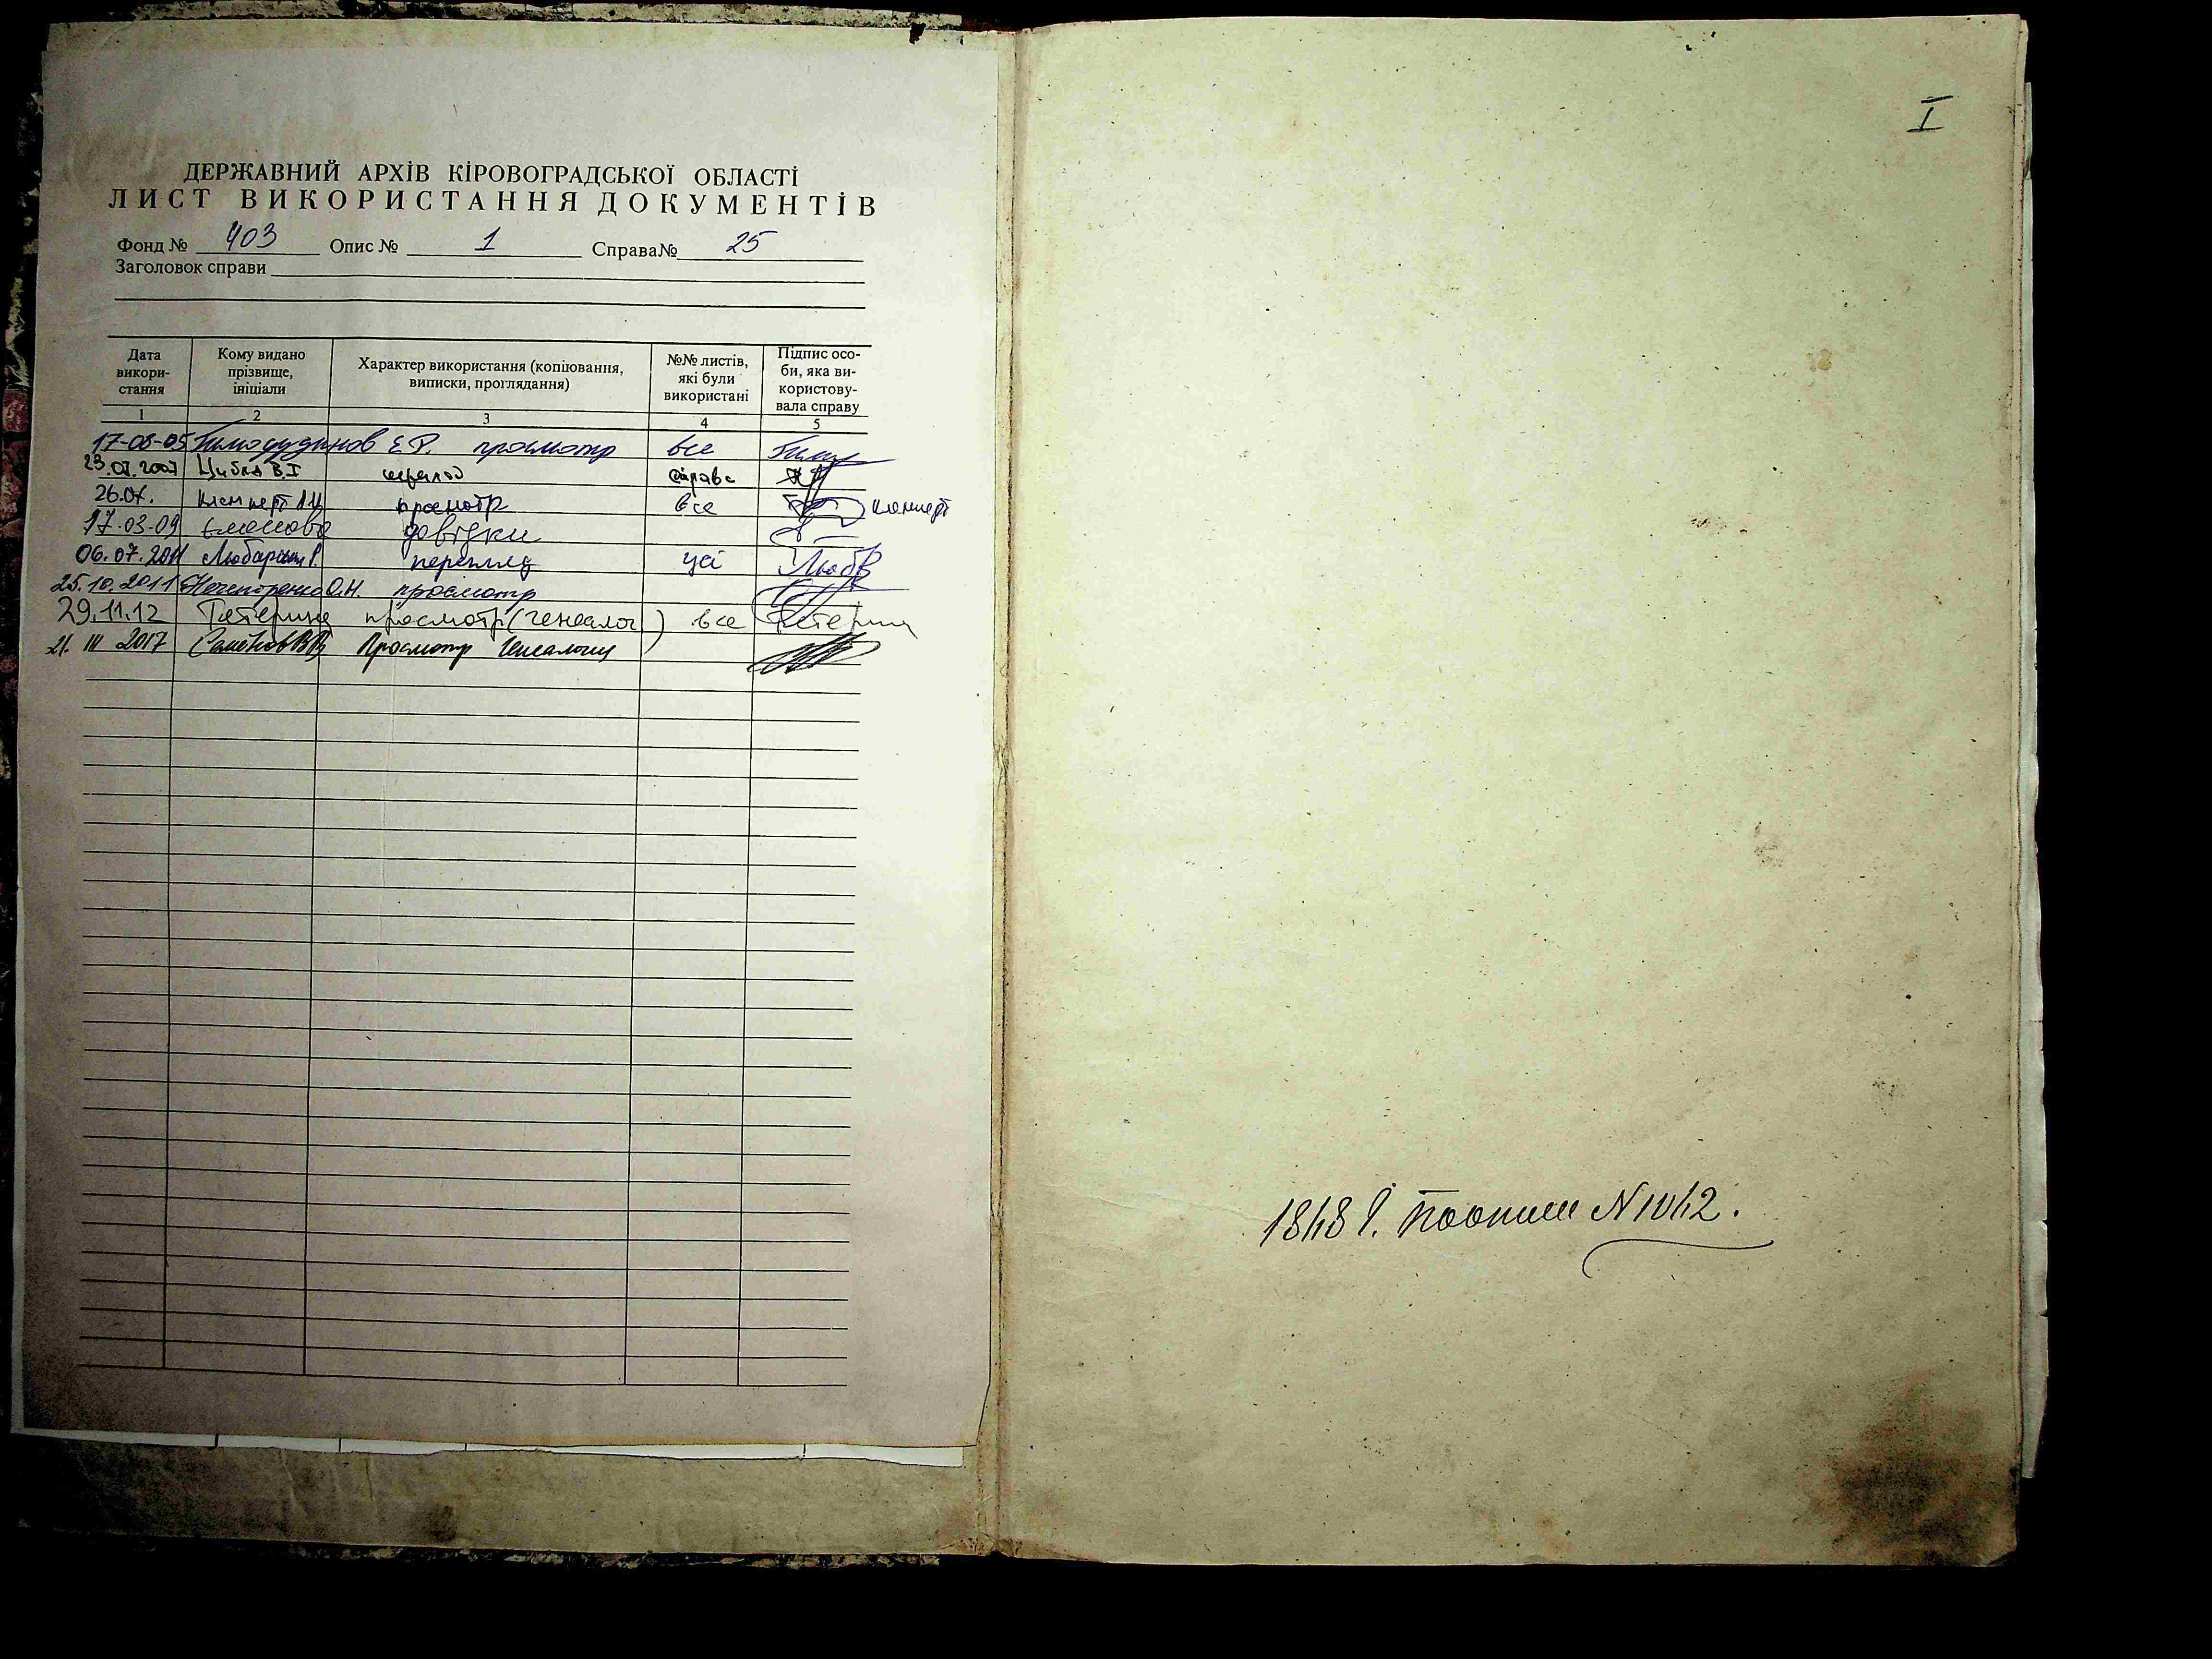 ДЕРЖАВНИЙ АРХІВ КІРОВОГРАДСЬКОЇ ОБЛАСТІ
ЛИСТ ВИКОРИСТАННЯ ДОКУМЕНТІВ
Фонд № 403 Опис № 1 Справа№ 25
Заголовок справи
Дата використання
Кому видано прізвище, ініціали
Характер використання (копіювання, виписки, проглядання)
№№ листів, які були використані
Підпис особи, яка використовувала справу
1 2 3 4 5
17-08-05 Е.Р. просмотр все
23.07.2007 Цибля В.І справа
26.07. просмотр все
17-03-09 довідки
06.07.2011 перегляд усі Любв
25.10.2011 О.Н. просмотр
29.11.12 Тетерина просмотр (генеалог) все Тетерин
21. III 2017 Просмотр Генеалогия
I
1848 г. по описи N 1042.